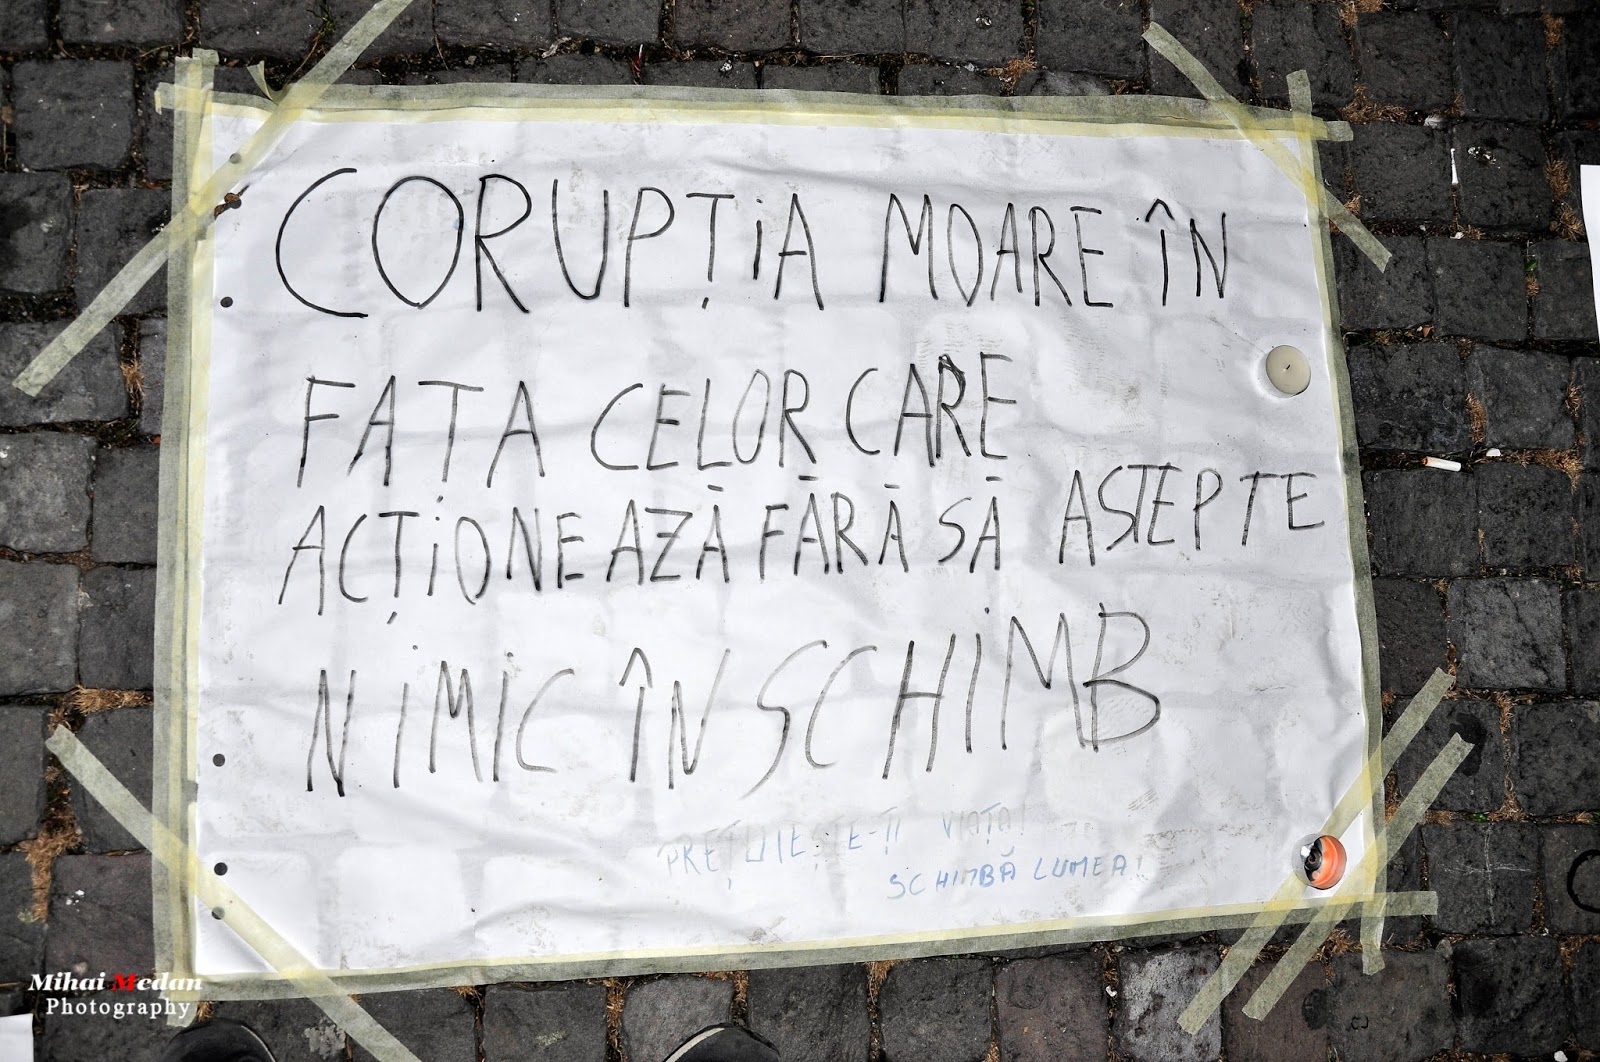 CORUPȚIA MOARE ÎN
FAȚA CELOR CARE
ACȚIONEAZĂ FĂRĂ SĂ ASTEPTE
NIMIC ÎN SCHIMB
PREȚUIEȘTE-ȚI VIAȚA!
SCHIMBĂ LUMEA!
Mihai Medan
Photography